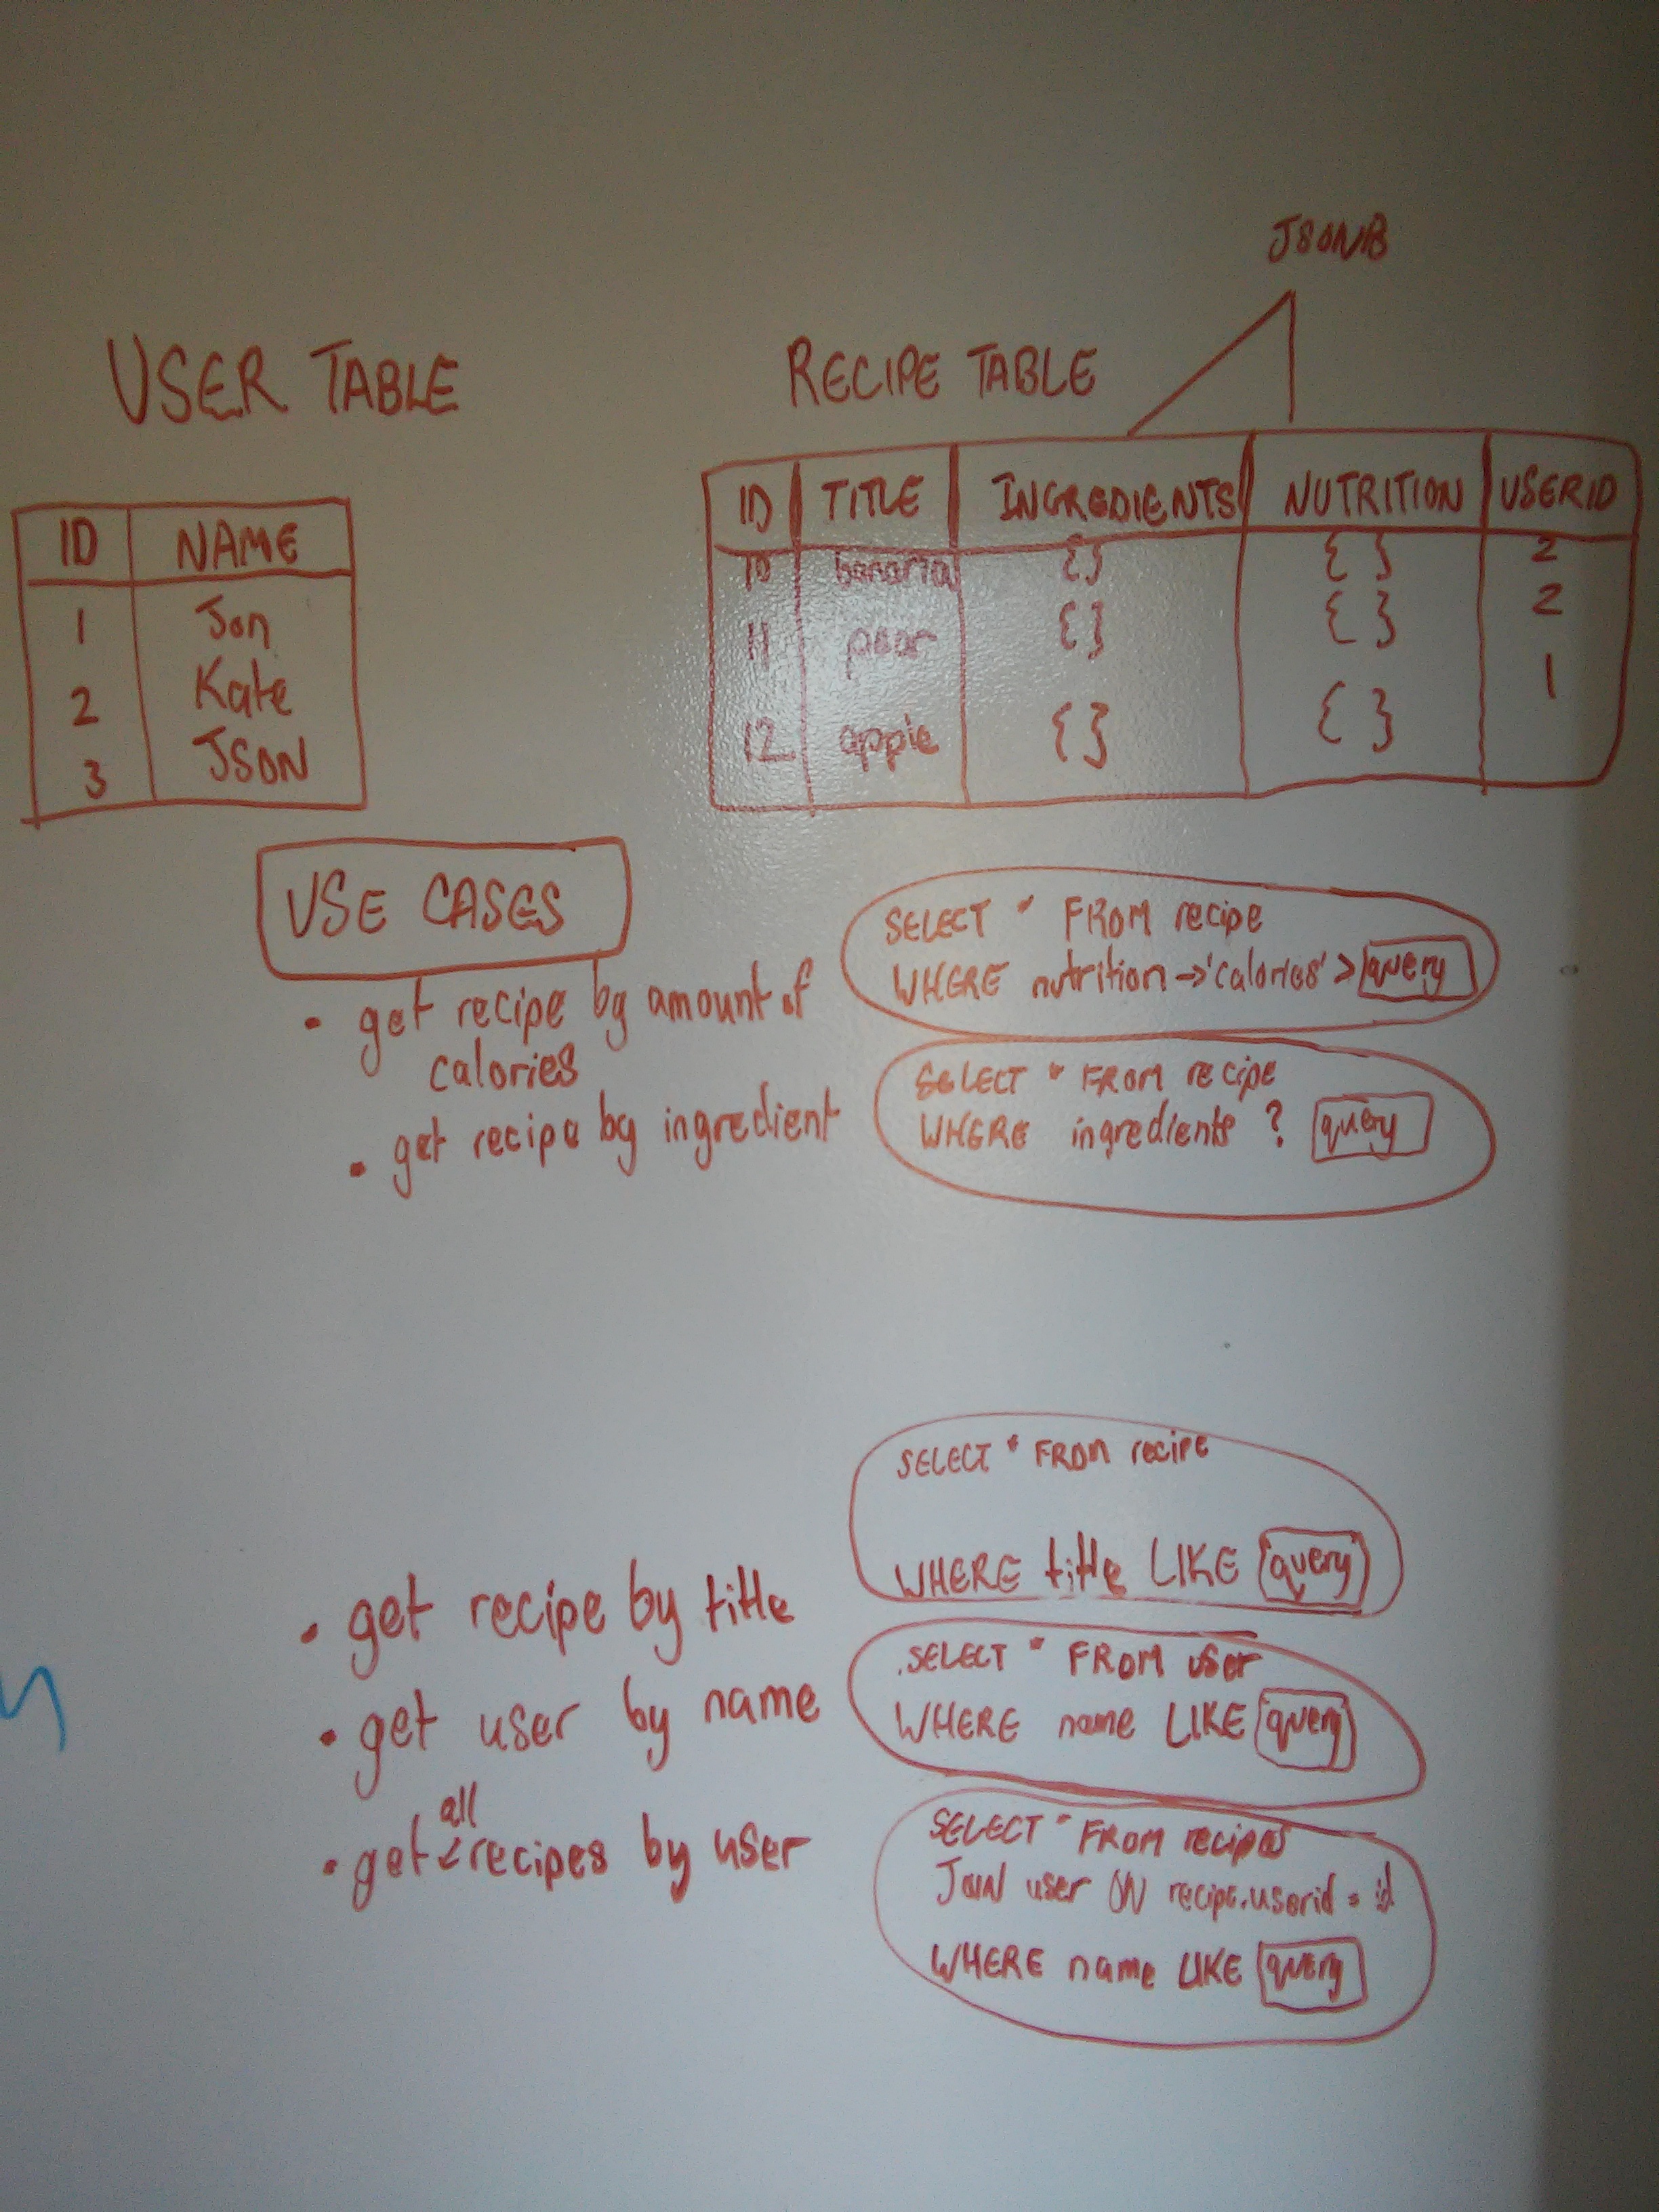 JSONB
USER TABLE
RECIPE TABLE
ID NAME
1 Jon
2 Kate
3 JSON
ID TITLE INGREDIENTS NUTRITION USERID
10 banana {} { } 2
11 pear {} { } 2
12 apple {} { } 1
USE CASES
• get recipe by amount of
calories
SELECT * FROM recipe
WHERE nutrition->'calories' > query
• get recipe by ingredient
SELECT * FROM recipe
WHERE ingredients ? query
• get recipe by title
SELECT * FROM recipe
WHERE title LIKE query
• get user by name
SELECT * FROM user
WHERE name LIKE query
• get all recipes by user
SELECT * FROM recipes
JOIN user ON recipe.userid = id
WHERE name LIKE query